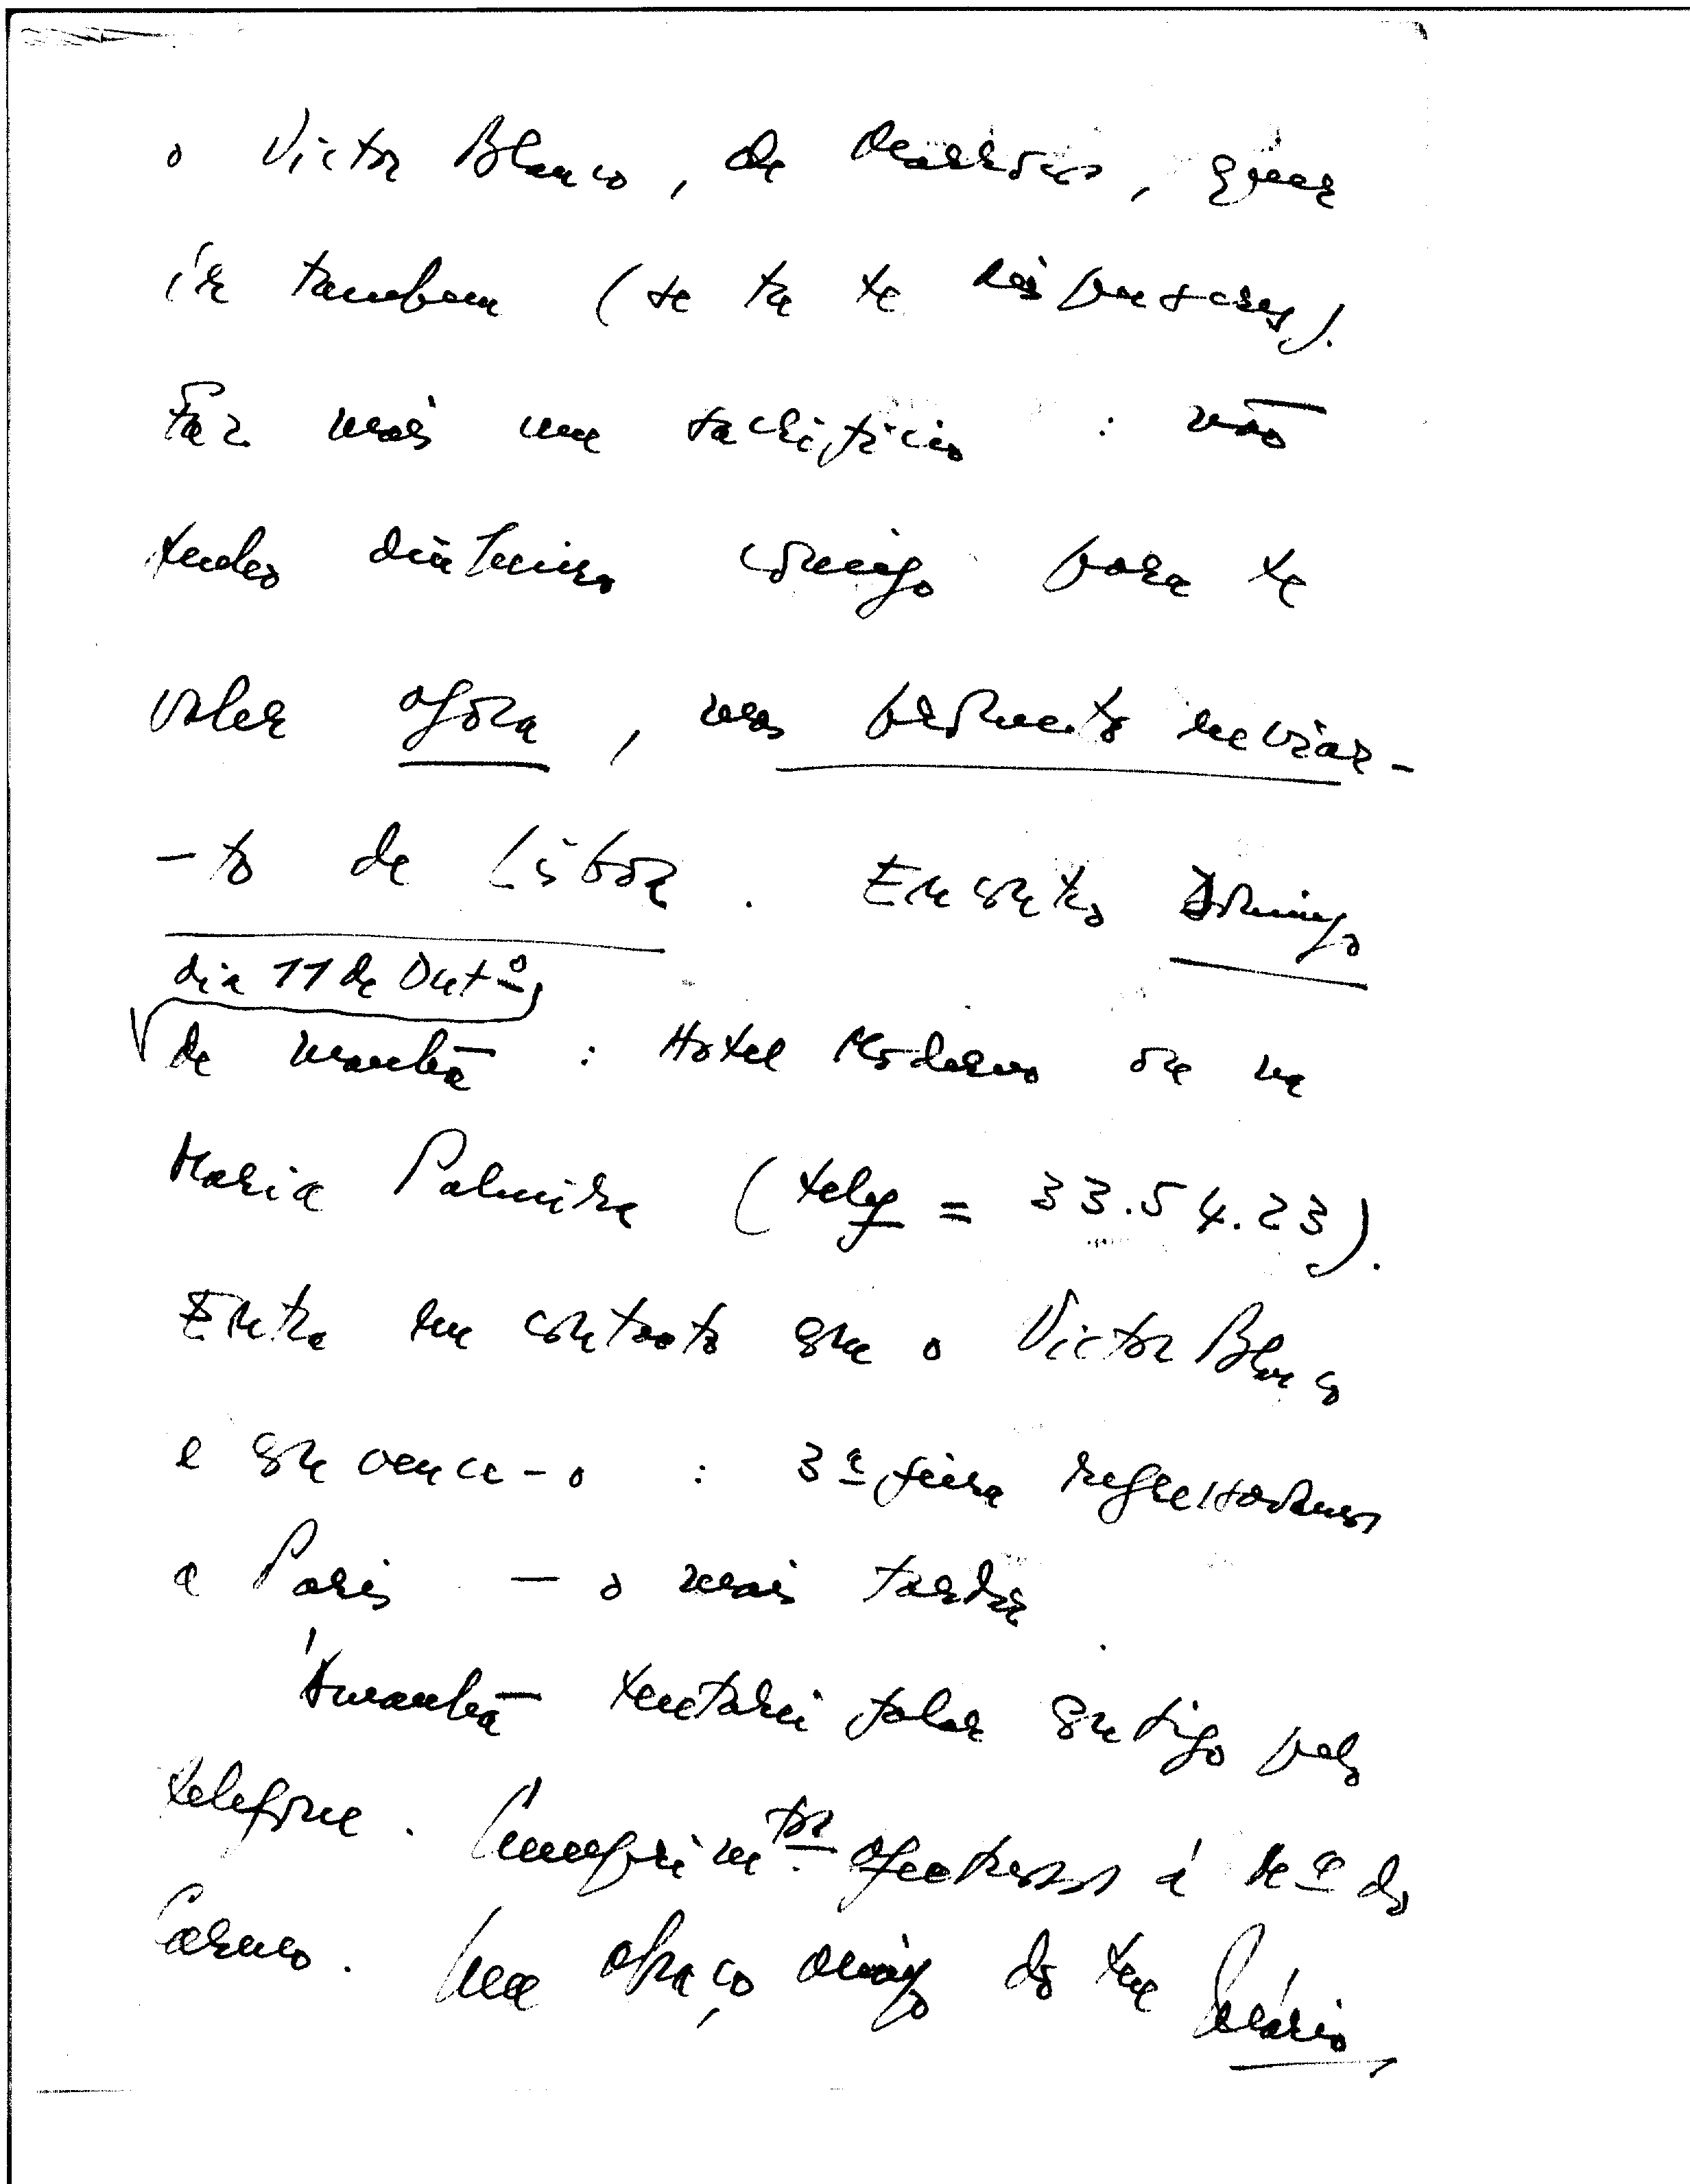 o Victor Blanco, de Marrocos, quer
ir tambem (se tu te dispuseres).
Faz mais um sacrifício : não
tenho dinheiro comigo para te
valer agora, mas prometo enviar-
-to de Lisboa. Encontro Domingo
dia 11 de Outº,
de manhã : Hotel Moderno ou na
Maria Palmira (telef = 33.54.23).
Entra em contacto com o Victor Blanco
e convence-o : 3ª feira regressamos
a Paris - o mais tardar.
Amanhã tentarei falar contigo pelo
telefone. Cumprimtos. afectuosos á Mª do
Carmo. Um abraço amigo do teu Mário